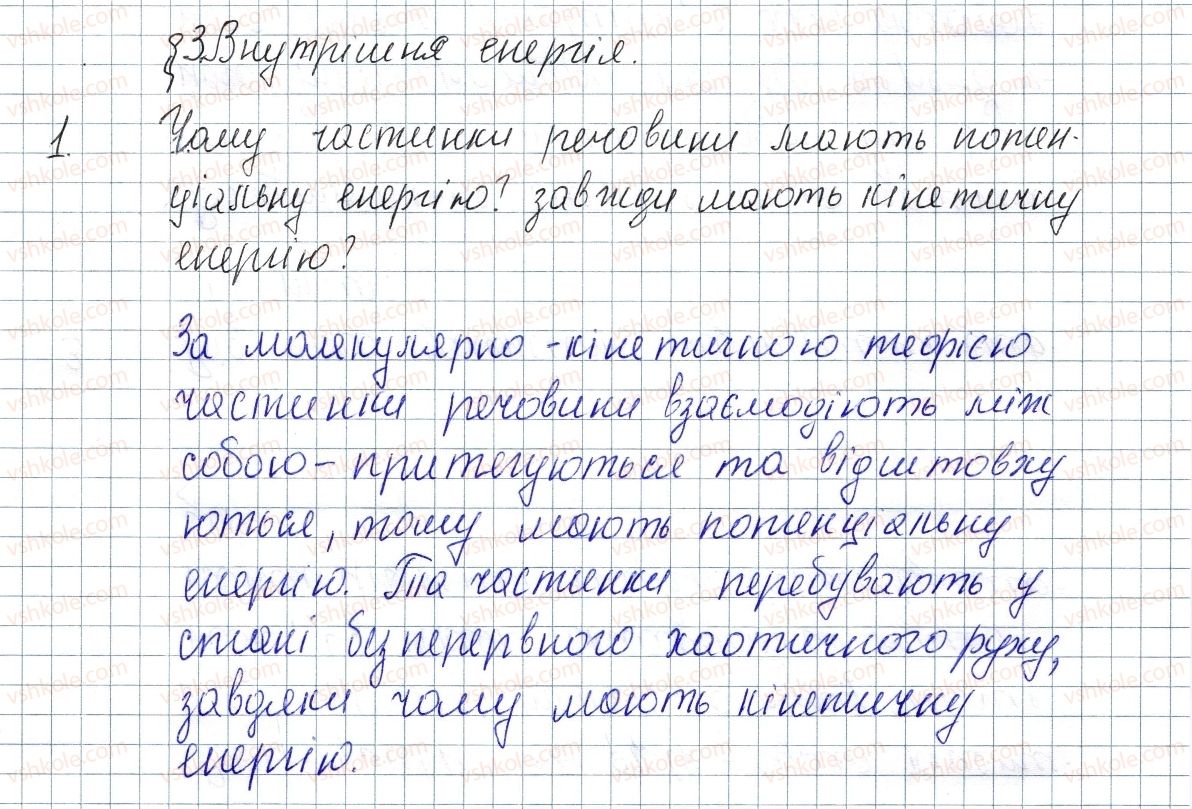 §3. Внутрішня енергія.
1. Чому частинки речовини мають потен-
ціальну енергію? завжди мають кінетичну
енергію?
За молекулярно-кінетичною теорією
частинки речовини взаємодіють між
собою - притягуються та відштовху
ються, тому мають потенціальну
енергію. Та частинки перебувають у
стані безперервного хаотичного руху,
завдяки чому мають кінетичну
енергію.
vshkole.com